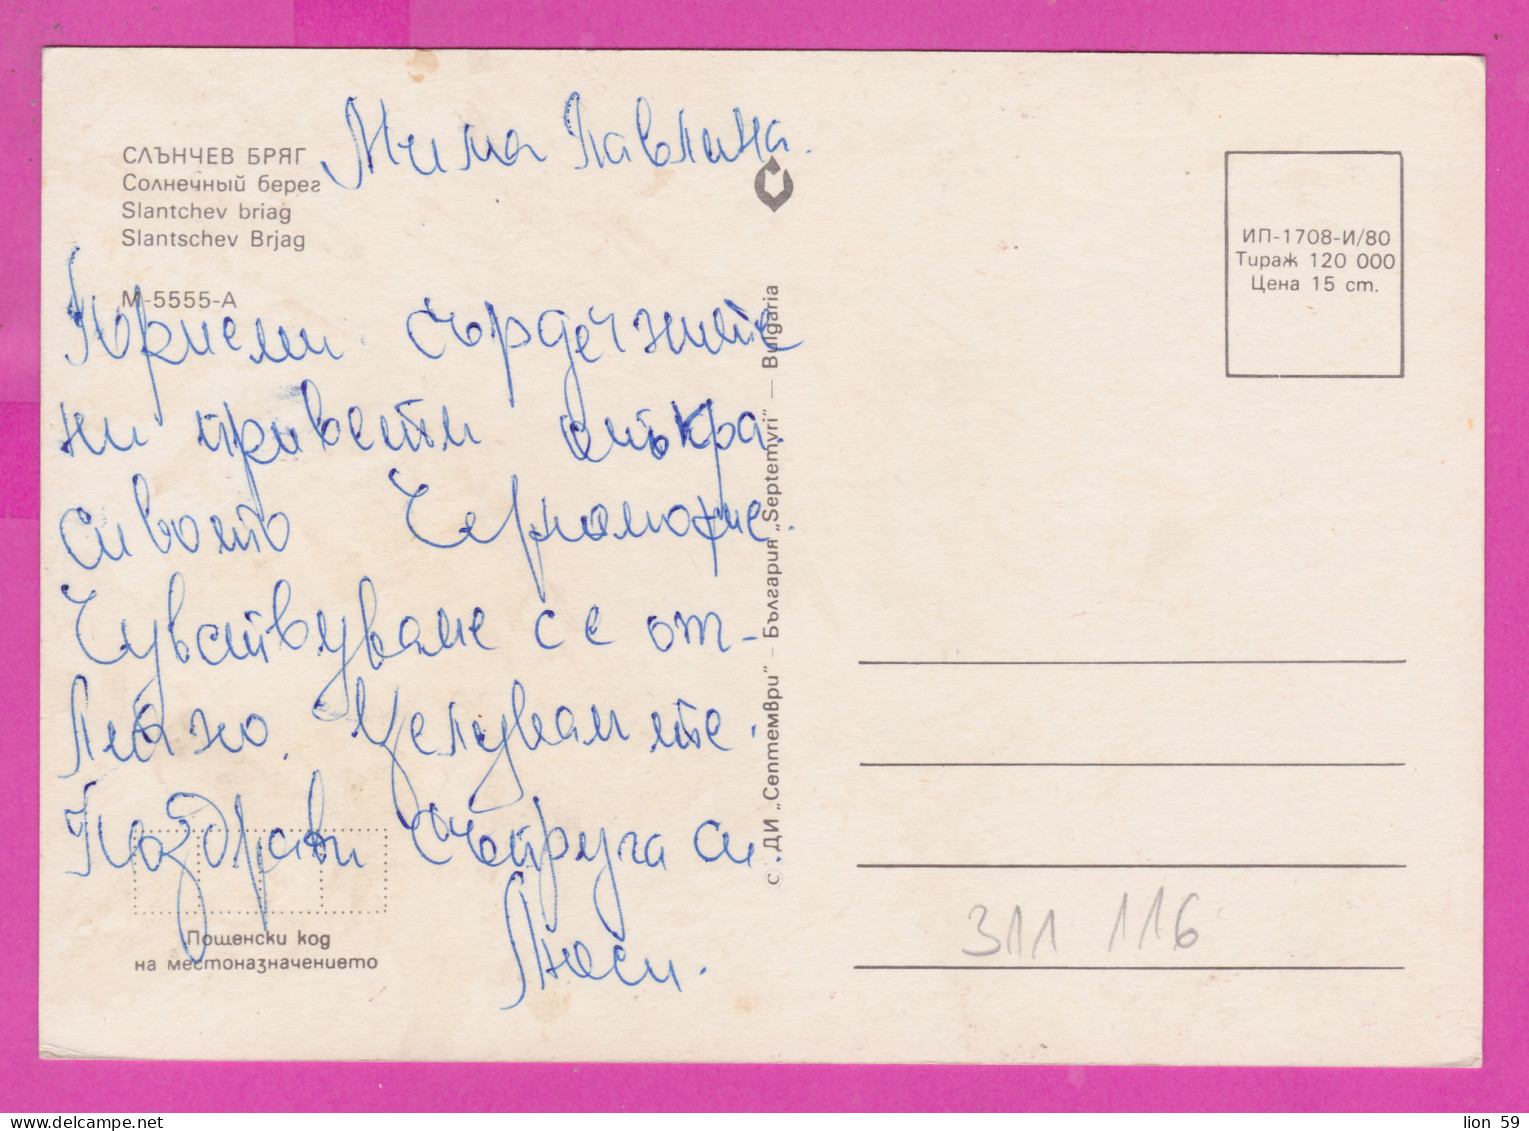 Мила Павлина.
СЛЪНЧЕВ БРЯГ
Солнечный берег
Slantchev briag
Slantschev Brjag
М-5555-А
Приеми сърдечните
ни привети от кра
сивото Черноморие.
Чувствуваме се от-
лично. Целувам те.
Поздрави съпруга си.
Люси.
Пощенски код
на местоназначението
С ДИ „Септември“ — България „Septemvri“ — Bulgaria
ИП-1708-И/80
Тираж 120 000
Цена 15 ст.
311 116
lion 59